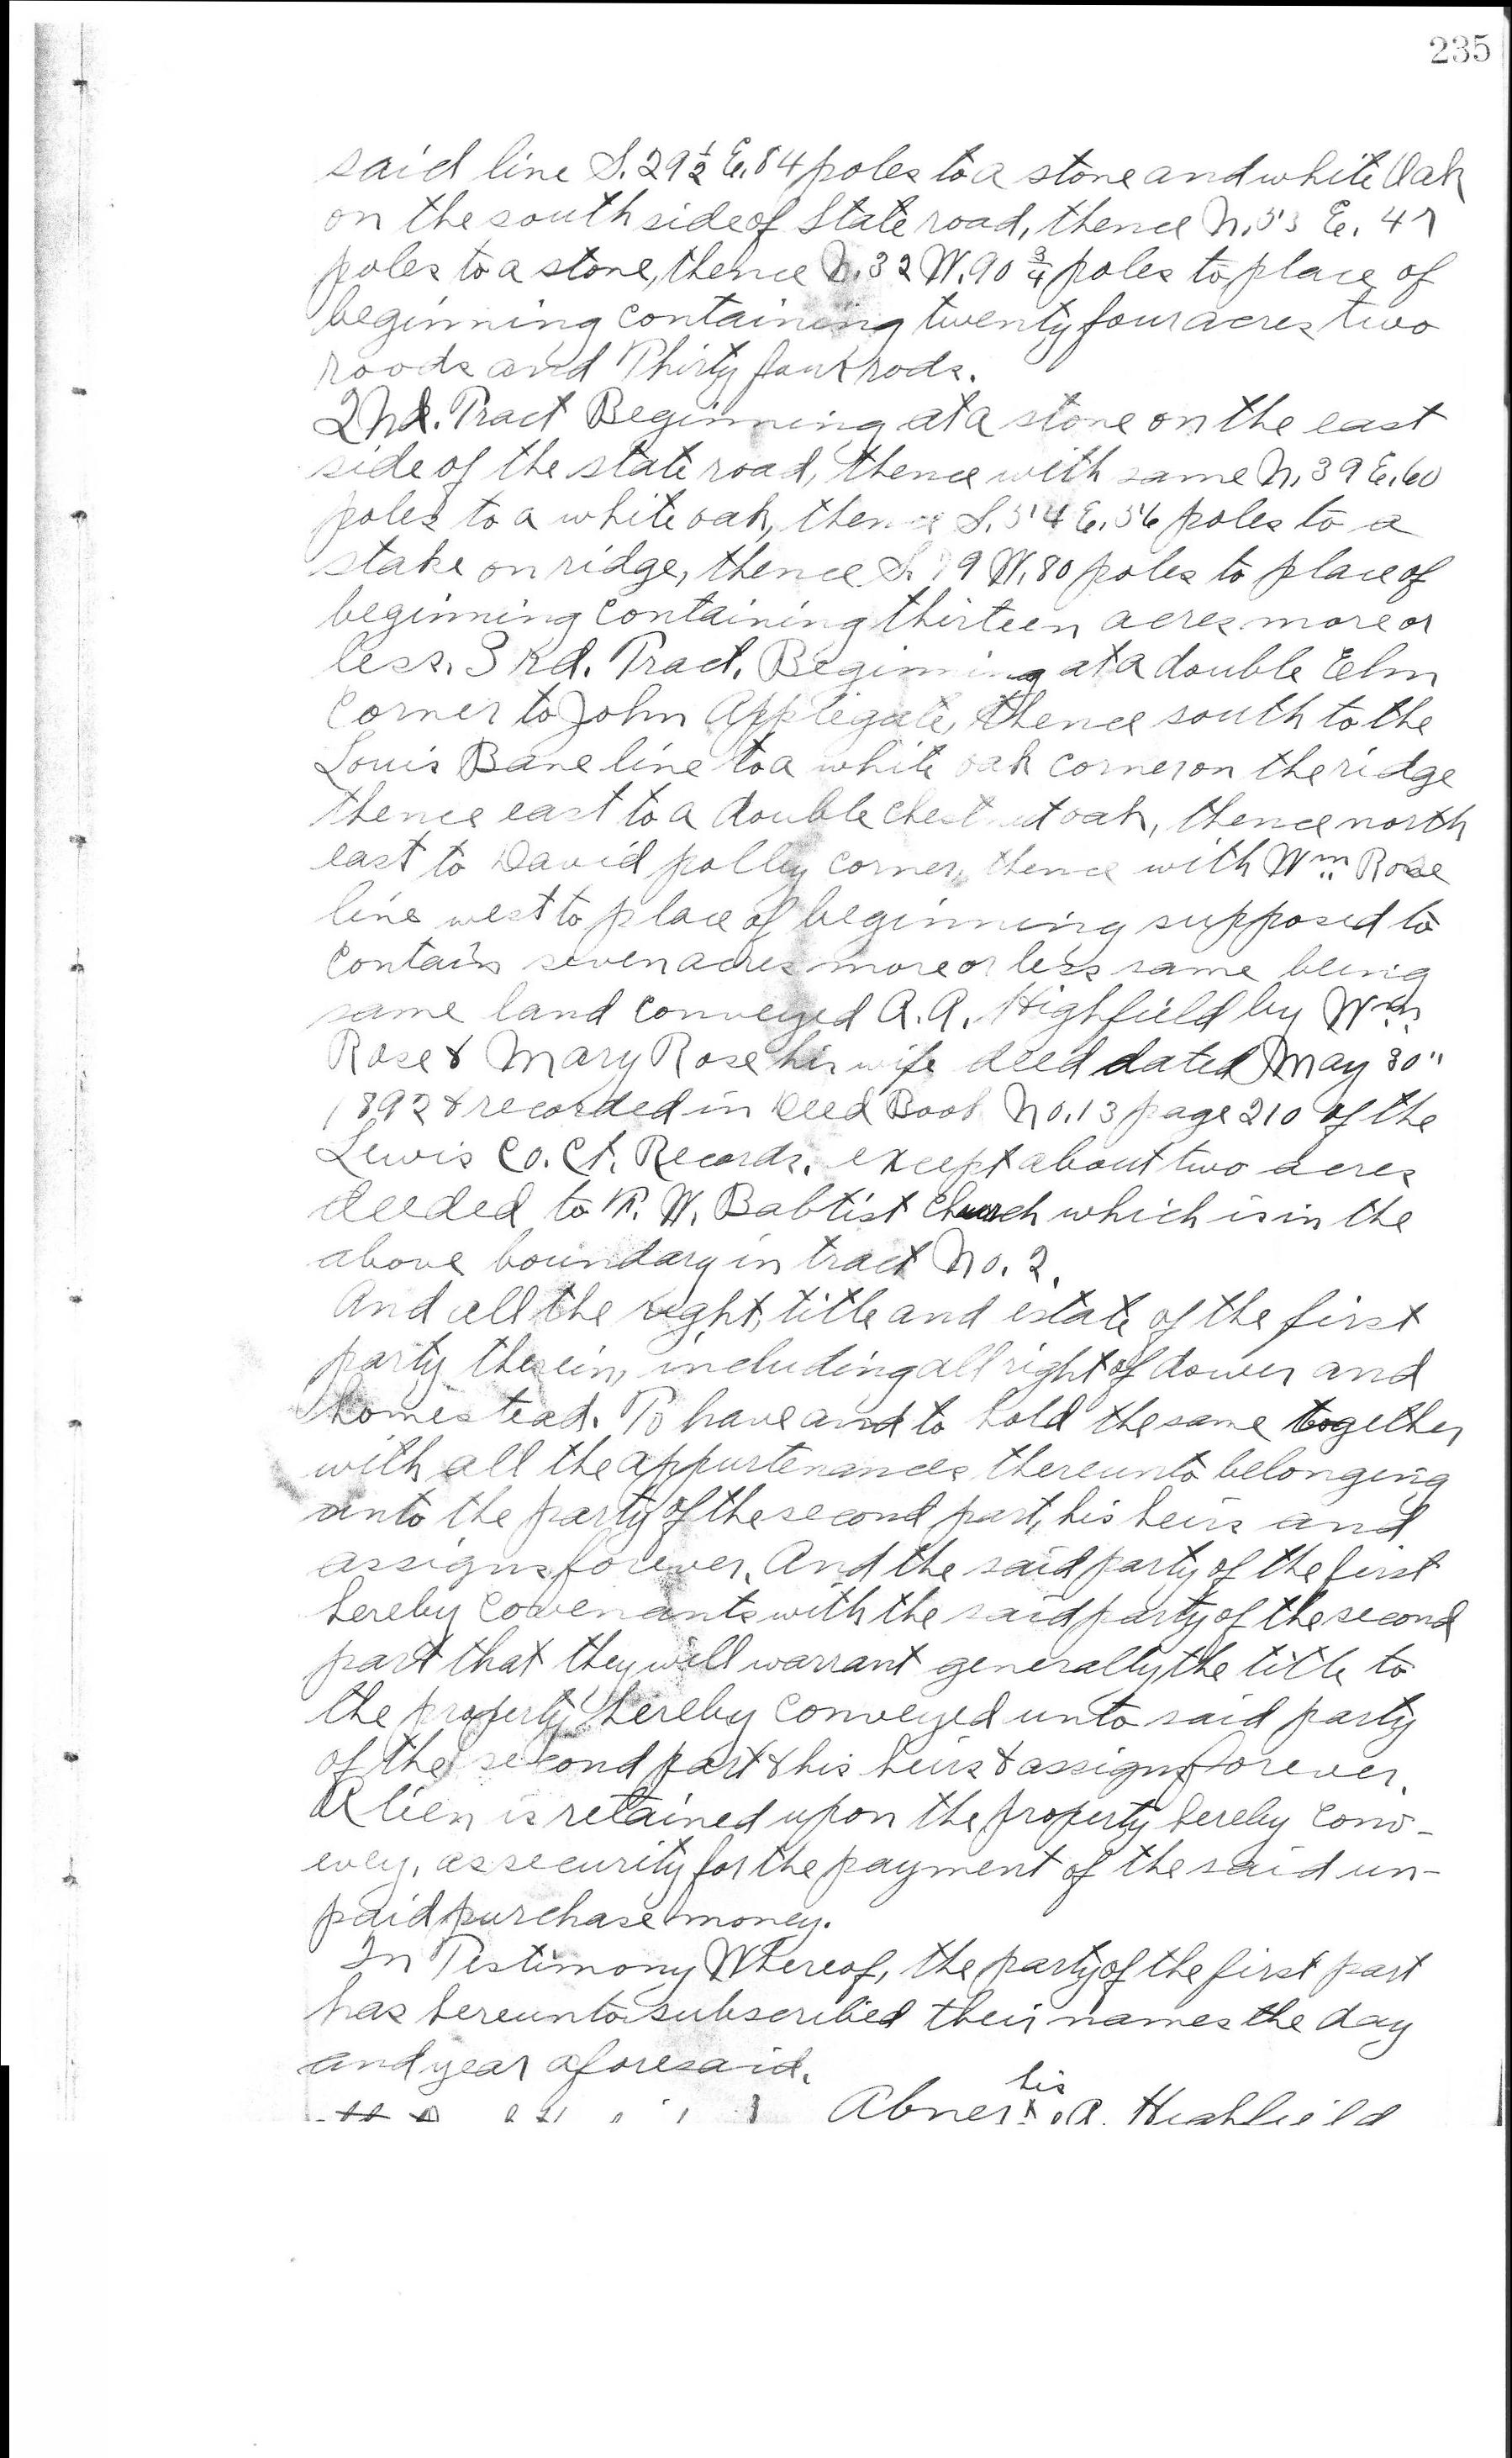 235
said line S. 29½ E. 84 poles to a stone and white Oak
on the south side of State road, thence N. 53 E. 47
poles to a stone, thence N. 32 W. 90¾ poles to place of
beginning containing twenty four acres two
roods and Thirty four rods.
2nd. Tract Beginning at a stone on the east
side of the state road, thence with same N. 39 E. 60
poles to a white oak, thence S. 54 E. 56 poles to a
stake on ridge, thence S. 79 W. 80 poles to place of
beginning containing thirteen acres more or
less. 3rd. Tract. Beginning at a double Elm
Corner to John Applegate, thence south to the
Louis Bane line to a white oak corner on the ridge
thence east to a double chestnut oak, thence north
east to David polley corner, thence with Wm Rose
line west to place of beginning supposed to
contain seven acres more or less same being
same land conveyed A. A. Highfield by Wm
Rose & Mary Rose his wife deed dated May 30"
1892 & recorded in Deed Book No. 13 page 210 of the
Lewis Co. Ct. Records. except about two acres
deeded to F. W. Babtist Church which is in the
above boundary in tract No. 2.
And all the right, title and estate of the first
party therein, including all right of dower and
homestead. To have and to hold the same together
with all the appurtenances thereunto belonging
unto the party of the second part, his heirs and
assigns forever. And the said party of the first
hereby covenants with the said party of the second
part that they will warrant generally the title to
the property hereby conveyed unto said party
of the second part & his heirs & assigns forever.
A lien is retained upon the property hereby conv-
evey, as security for the payment of the said un-
paid purchase money.
In Testimony Whereof, the party of the first part
has hereunto subscribed their names the day
and year aforesaid.
his
Abner x A. Highfield